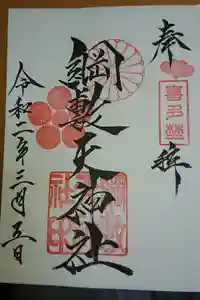 奉拝
喜多野
綱敷天神社
令和二年三月五日